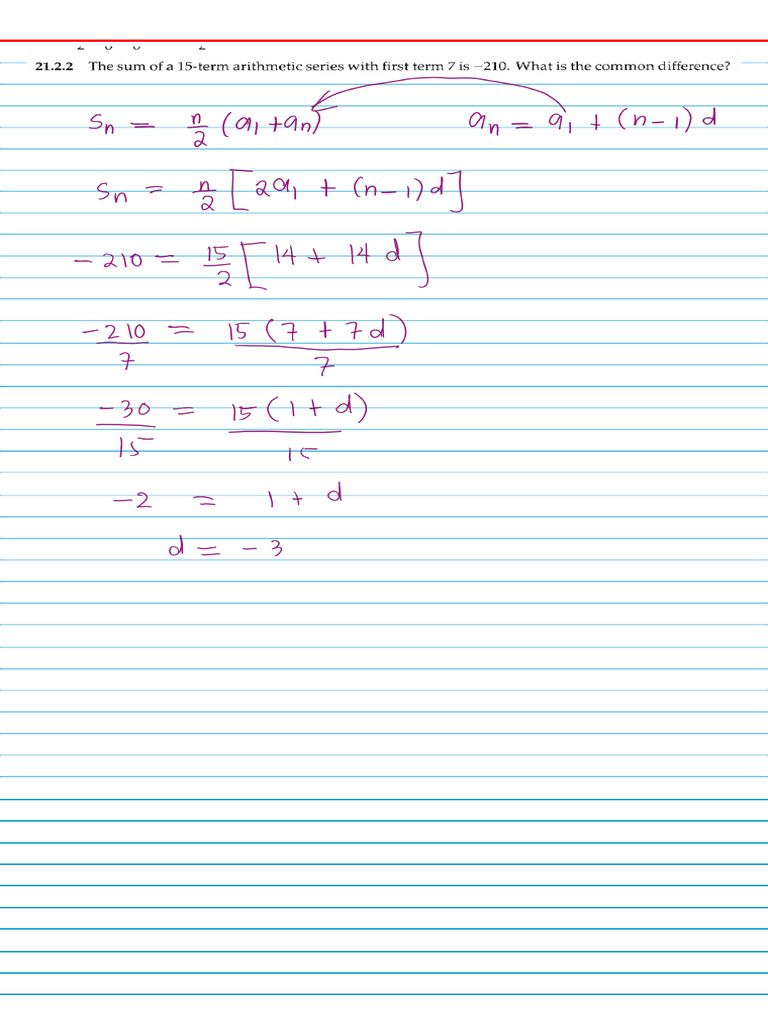 21.2.2 The sum of a 15-term arithmetic series with first term 7 is −210. What is the common difference?
Sn = n/2 (a1 + an) an = a1 + (n−1) d
Sn = n/2 [2a1 + (n−1) d]
−210 = 15/2 [14 + 14 d]
−210/7 = 15 (7 + 7d)/7
−30/15 = 15 (1 + d)/15
−2 = 1 + d
d = −3